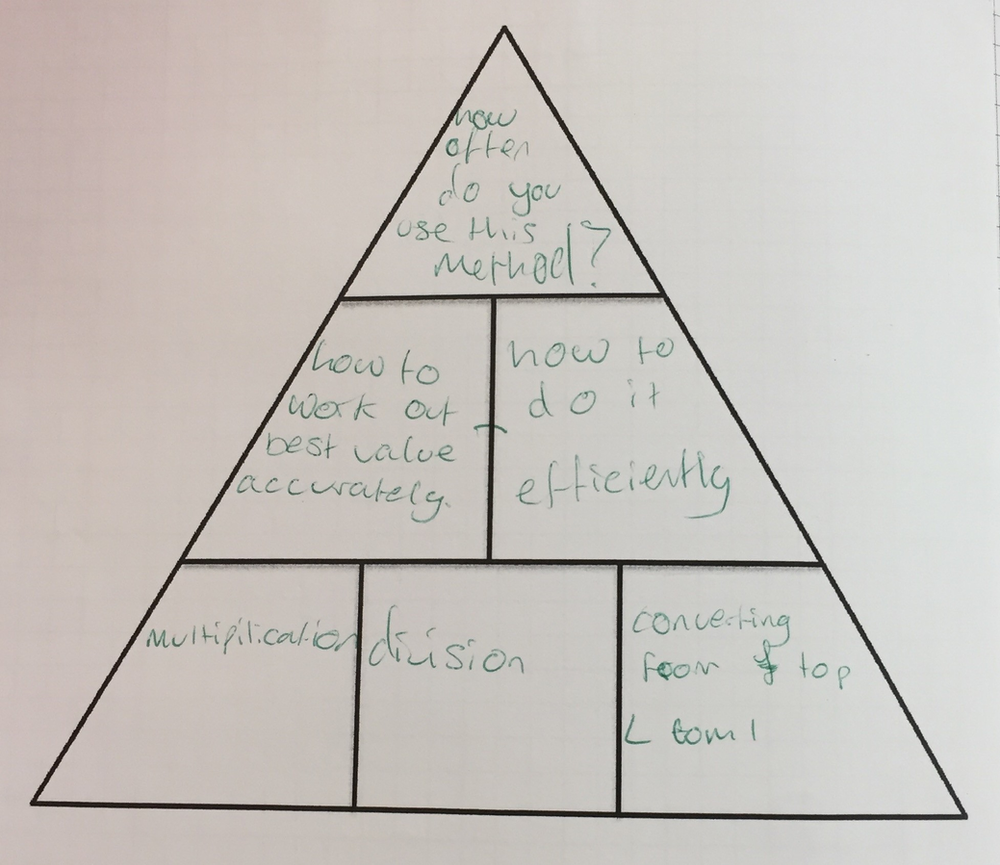 how
often
do you
use this
method?
how to
work out
best value
accurately.
how to
do it
efficiently
multipilication
division
converting
from £ to p
L to ml